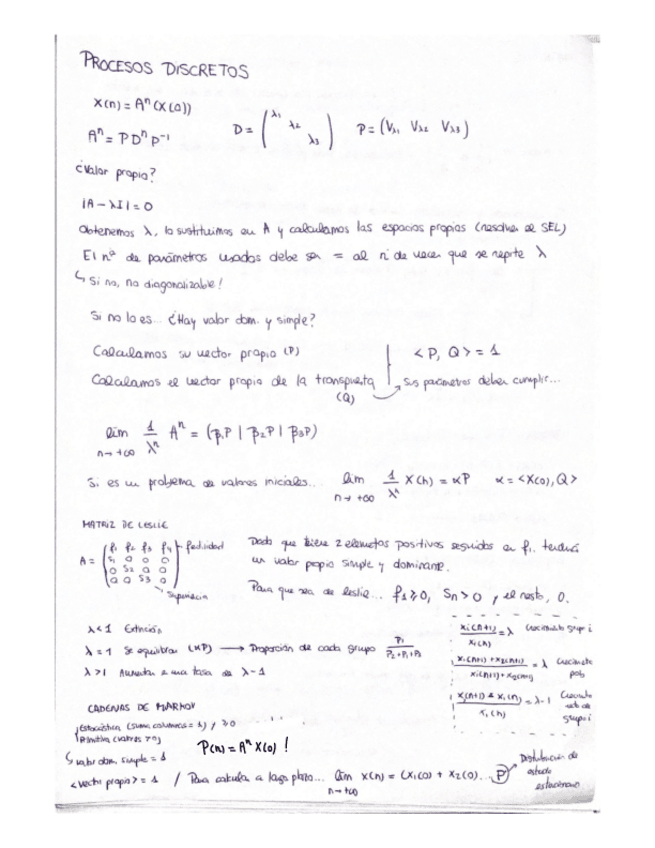 PROCESOS DISCRETOS
X(n) = Aⁿ(X(0))
Aⁿ = PDⁿP⁻¹ D = (λ₁ λ₂ λ₃) P = (Vλ₁ Vλ₂ Vλ₃)
¿Valor propio?
|A - λI| = 0
Obtenemos λ, lo sustituimos en A y calculamos los espacios propios (resolver el SEL)
El nº de parámetros usados debe ser = al nº de veces que se repite λ
↳ Si no, no diagonalizable!
Si no lo es... ¿Hay valor dom. y simple?
Calculamos su vector propio (P) <P, Q> = 1
Calculamos el vector propio de la transpuesta (Q) Sus parámetros deben cumplir...
lim n→+∞ 1/λⁿ Aⁿ = (β₁P | β₂P | β₃P)
Si es un problema de valores iniciales... lim n→+∞ 1/λⁿ X(n) = αP α = <X(0), Q>
MATRIZ DE LESLIE
A = (f₁ f₂ f₃ f₄ / S₁ 0 0 0 / 0 S₂ 0 0 / 0 0 S₃ 0) fecundidad
Supervivencia
Dado que tiene 2 elementos positivos seguidos en f₁. tendrá
un valor propio simple y dominante.
Para que sea de leslie... f₁ ≥ 0, Sn > 0 y el resto, 0.
λ < 1 Extinción
λ = 1 Se equilibran (αP) → Proporción de cada grupo P₁/(P₂+P₁+P₃)
λ > 1 Aumentan a una tasa de λ - 1
xi(n+1)/xi(n) = λ Crecimiento grupo i
= λ Crecimiento pob
= λ - 1 grupo i
CADENAS DE MARKOV
Estocástica (suma columnas = 1) y ≥ 0
Primitiva (valores > 0)
P(n) = Aⁿ X(0) !
↳ valor dom. simple = 1
<vector propio> = 1 / Para calcular a largo plazo... lim n→+∞ X(n) = (X₁(0) + X₂(0)... P
Distribución de
estado
estacionario